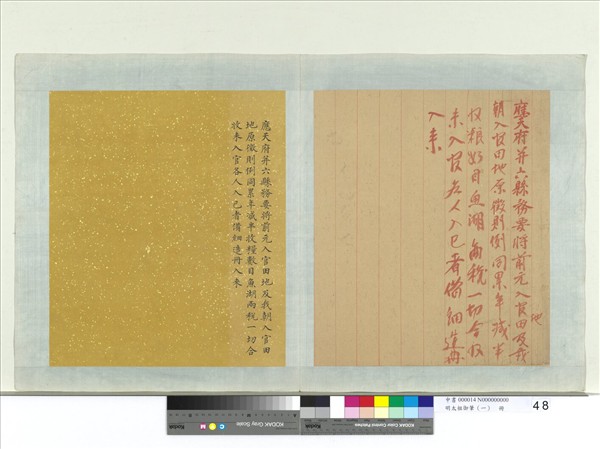 應天府并六縣務要將前元入官田及我
地
朝入官田地原徵則例同累年減半
收糧數目魚湖兩稅一切合收
未入官各人入已者備細造冊
入來
應天府并六縣務要將前元入官田地及我朝入官田
地原徵則例同累年減半收糧數目魚湖兩稅一切合
收未入官各人入己者備細造冊入來
KODAK Color Control Patches
Kodak
KODAK Gray Scale
C Y M
Kodak
中書 000014 N000000000
明太祖御筆(一) 冊
48